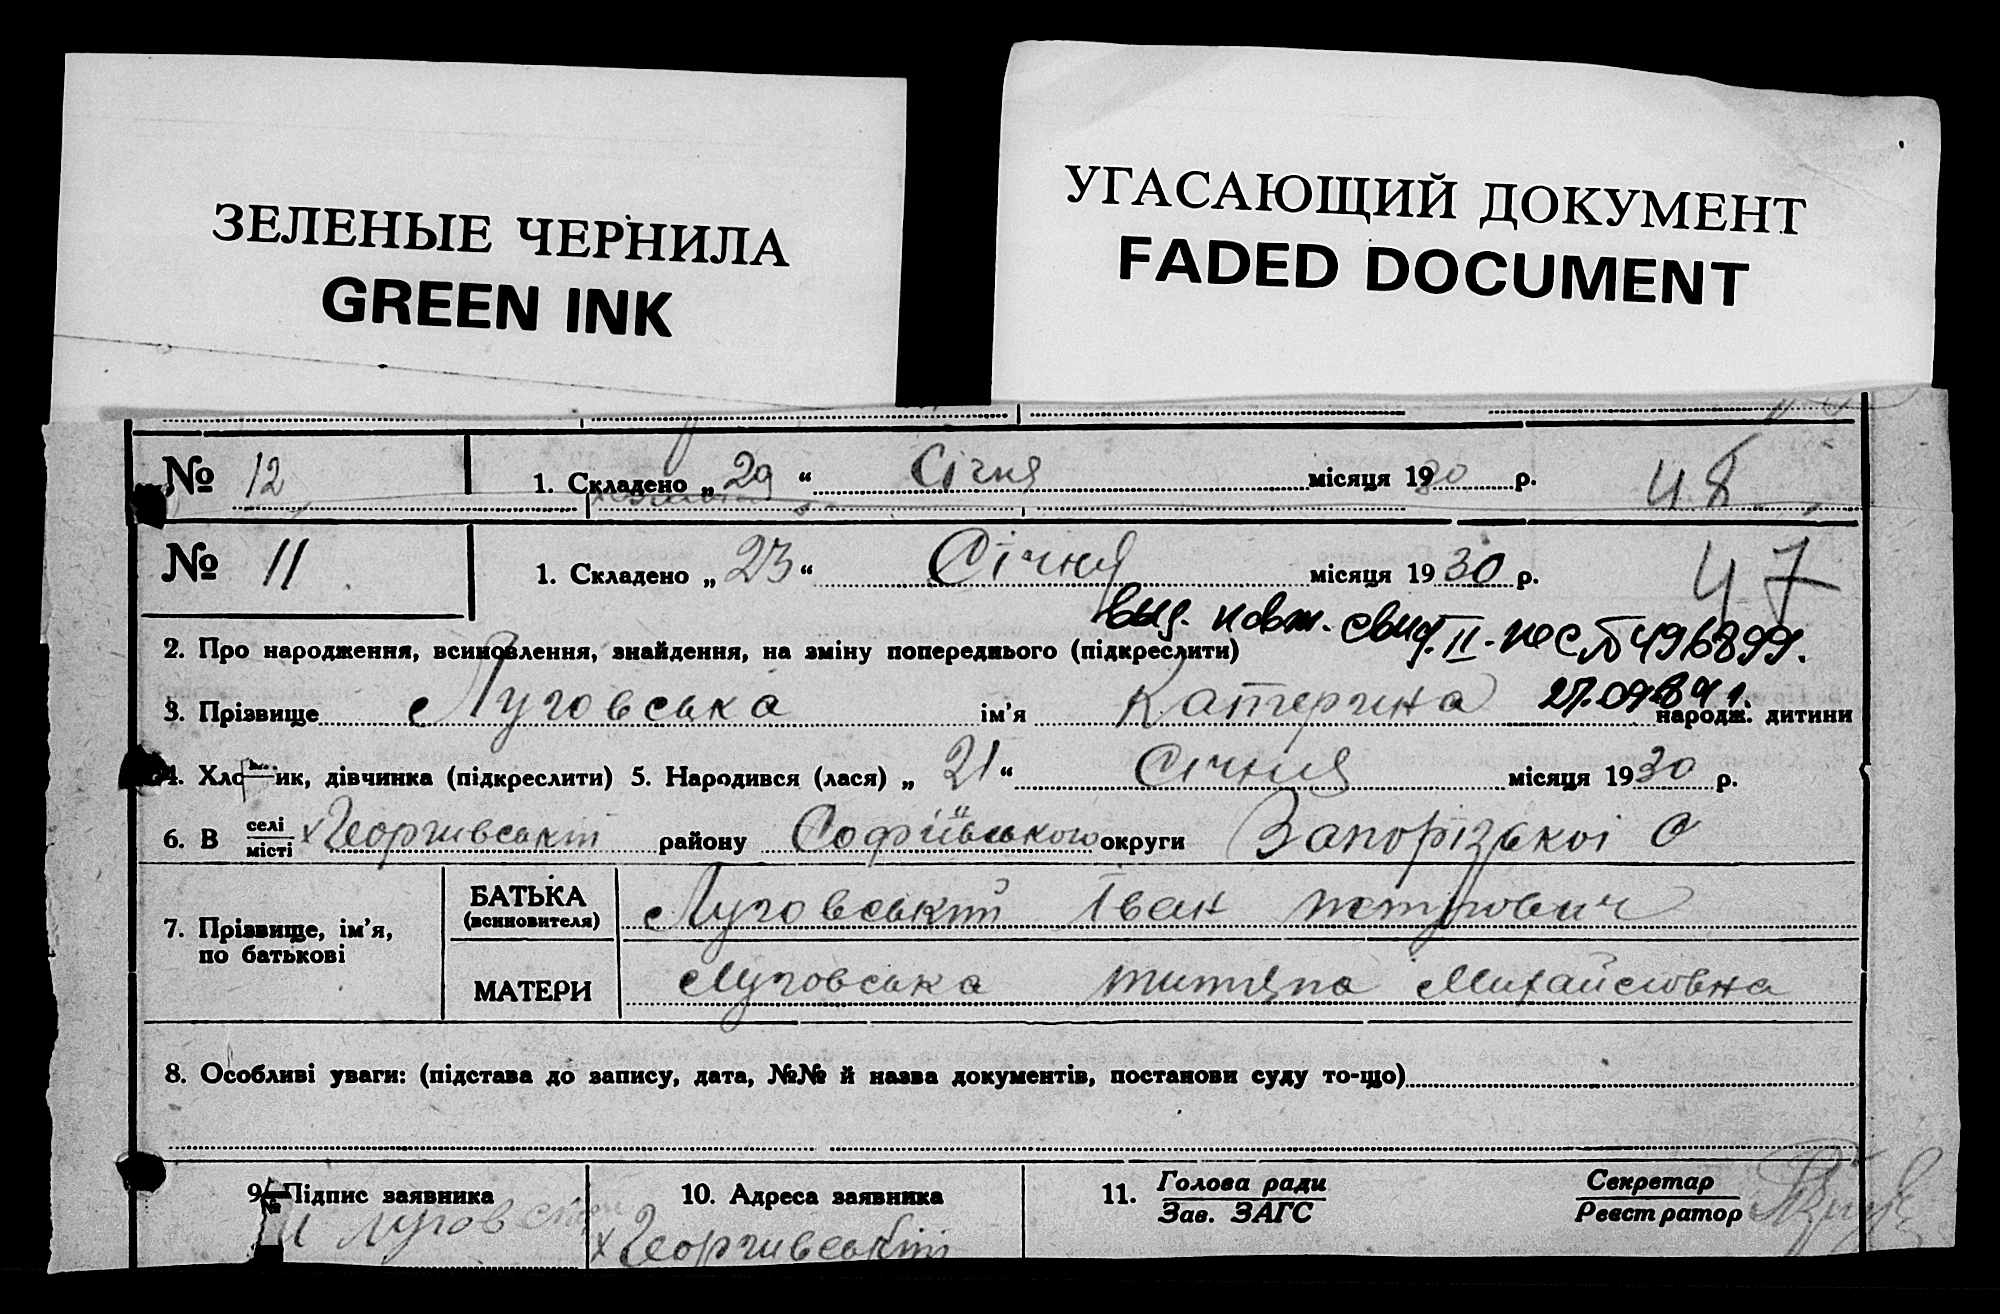 ЗЕЛЕНЫЕ ЧЕРНИЛА
GREEN INK
УГАСАЮЩИЙ ДОКУМЕНТ
FADED DOCUMENT
№ 12 1. Складено „ 29 “ Січня місяця 1930 р. 48
№ 11 1. Складено „ 23 “ Січня місяця 1930 р. 47
выд. повт. свид. II-
2. Про народження, всиновлення, знайдення, на зміну попереднього (підкреслити)
3. Прізвище Луговська ім’я Катерина народж. дитини
4. Хлопчик, дівчинка (підкреслити) 5. Народився (лася) „ 21 “ Січня місяця 1930 р.
6. В селі місті х Георгиевський району Софіївського округи Запорізькоі О
7. Прізвище, ім’я, по батькові
БАТЬКА (всиновителя) Луговський Іван Петрович
МАТЕРИ Луговська Михайловна
8. Особливі уваги: (підстава до запису, дата, №№ й назва документів, постанови суду то-що)
9. Підпис заявника 10. Адреса заявника 11. Голова ради Зав. ЗАГС Секретар Реєстратор
х Георгивський